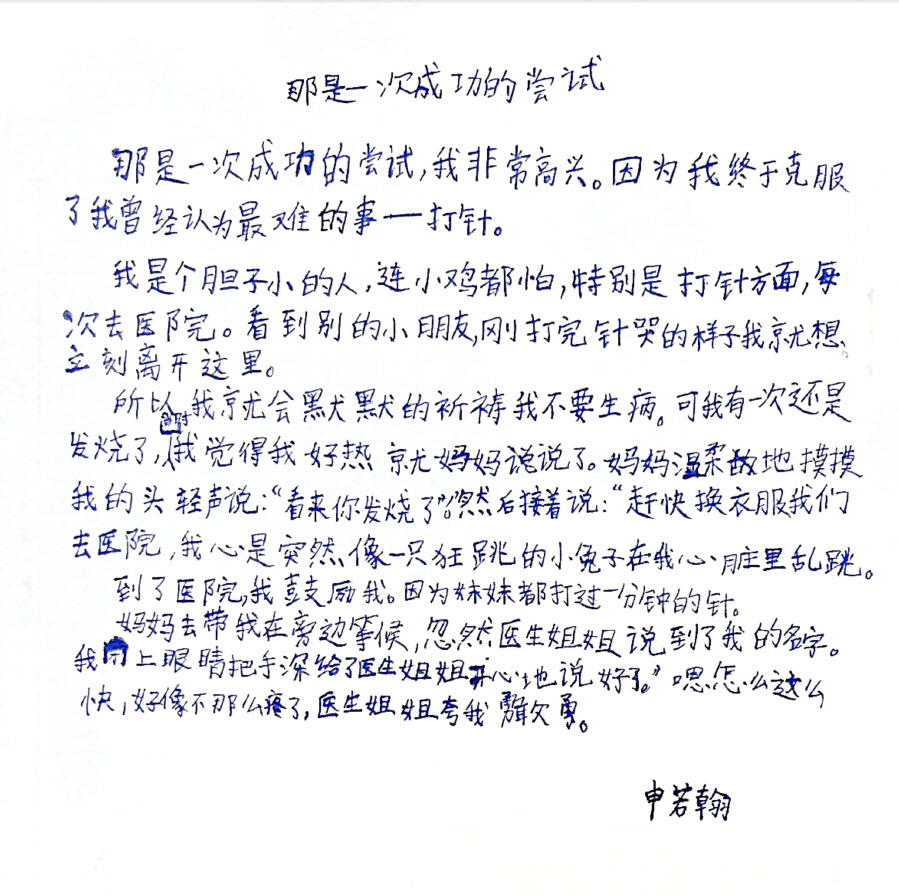 那是一次成功的尝试
那是一次成功的尝试,我非常高兴。因为我终于克服
了我曾经认为最难的事一打针。
我是个胆子小的人,连小鸡都怕,特别是打针方面,每
次去医院。看到别的小朋友,刚打完针哭的样子我就想
立刻离开这里。
所以,我就会默默的祈祷我不要生病。可我有一次还是
发烧了,当时我觉得我好热 就妈妈说说了。妈妈温柔地摸摸
我的头轻声说:“看来你发烧了”。然后接着说:“赶快换衣服我们
去医院,我心是突然像一只狂跳的小兔子在我心脏里乱跳。
到了医院,我鼓励我。因为妹妹都打过一分钟的针。
妈妈去带我在旁边等候,忽然医生姐姐说到了我的名字。
我闭上眼睛把手深给了医生姐姐开心地说好了。”嗯怎么这么
快,好像不那么疼了,医生姐姐夸我 勇。
申若翰